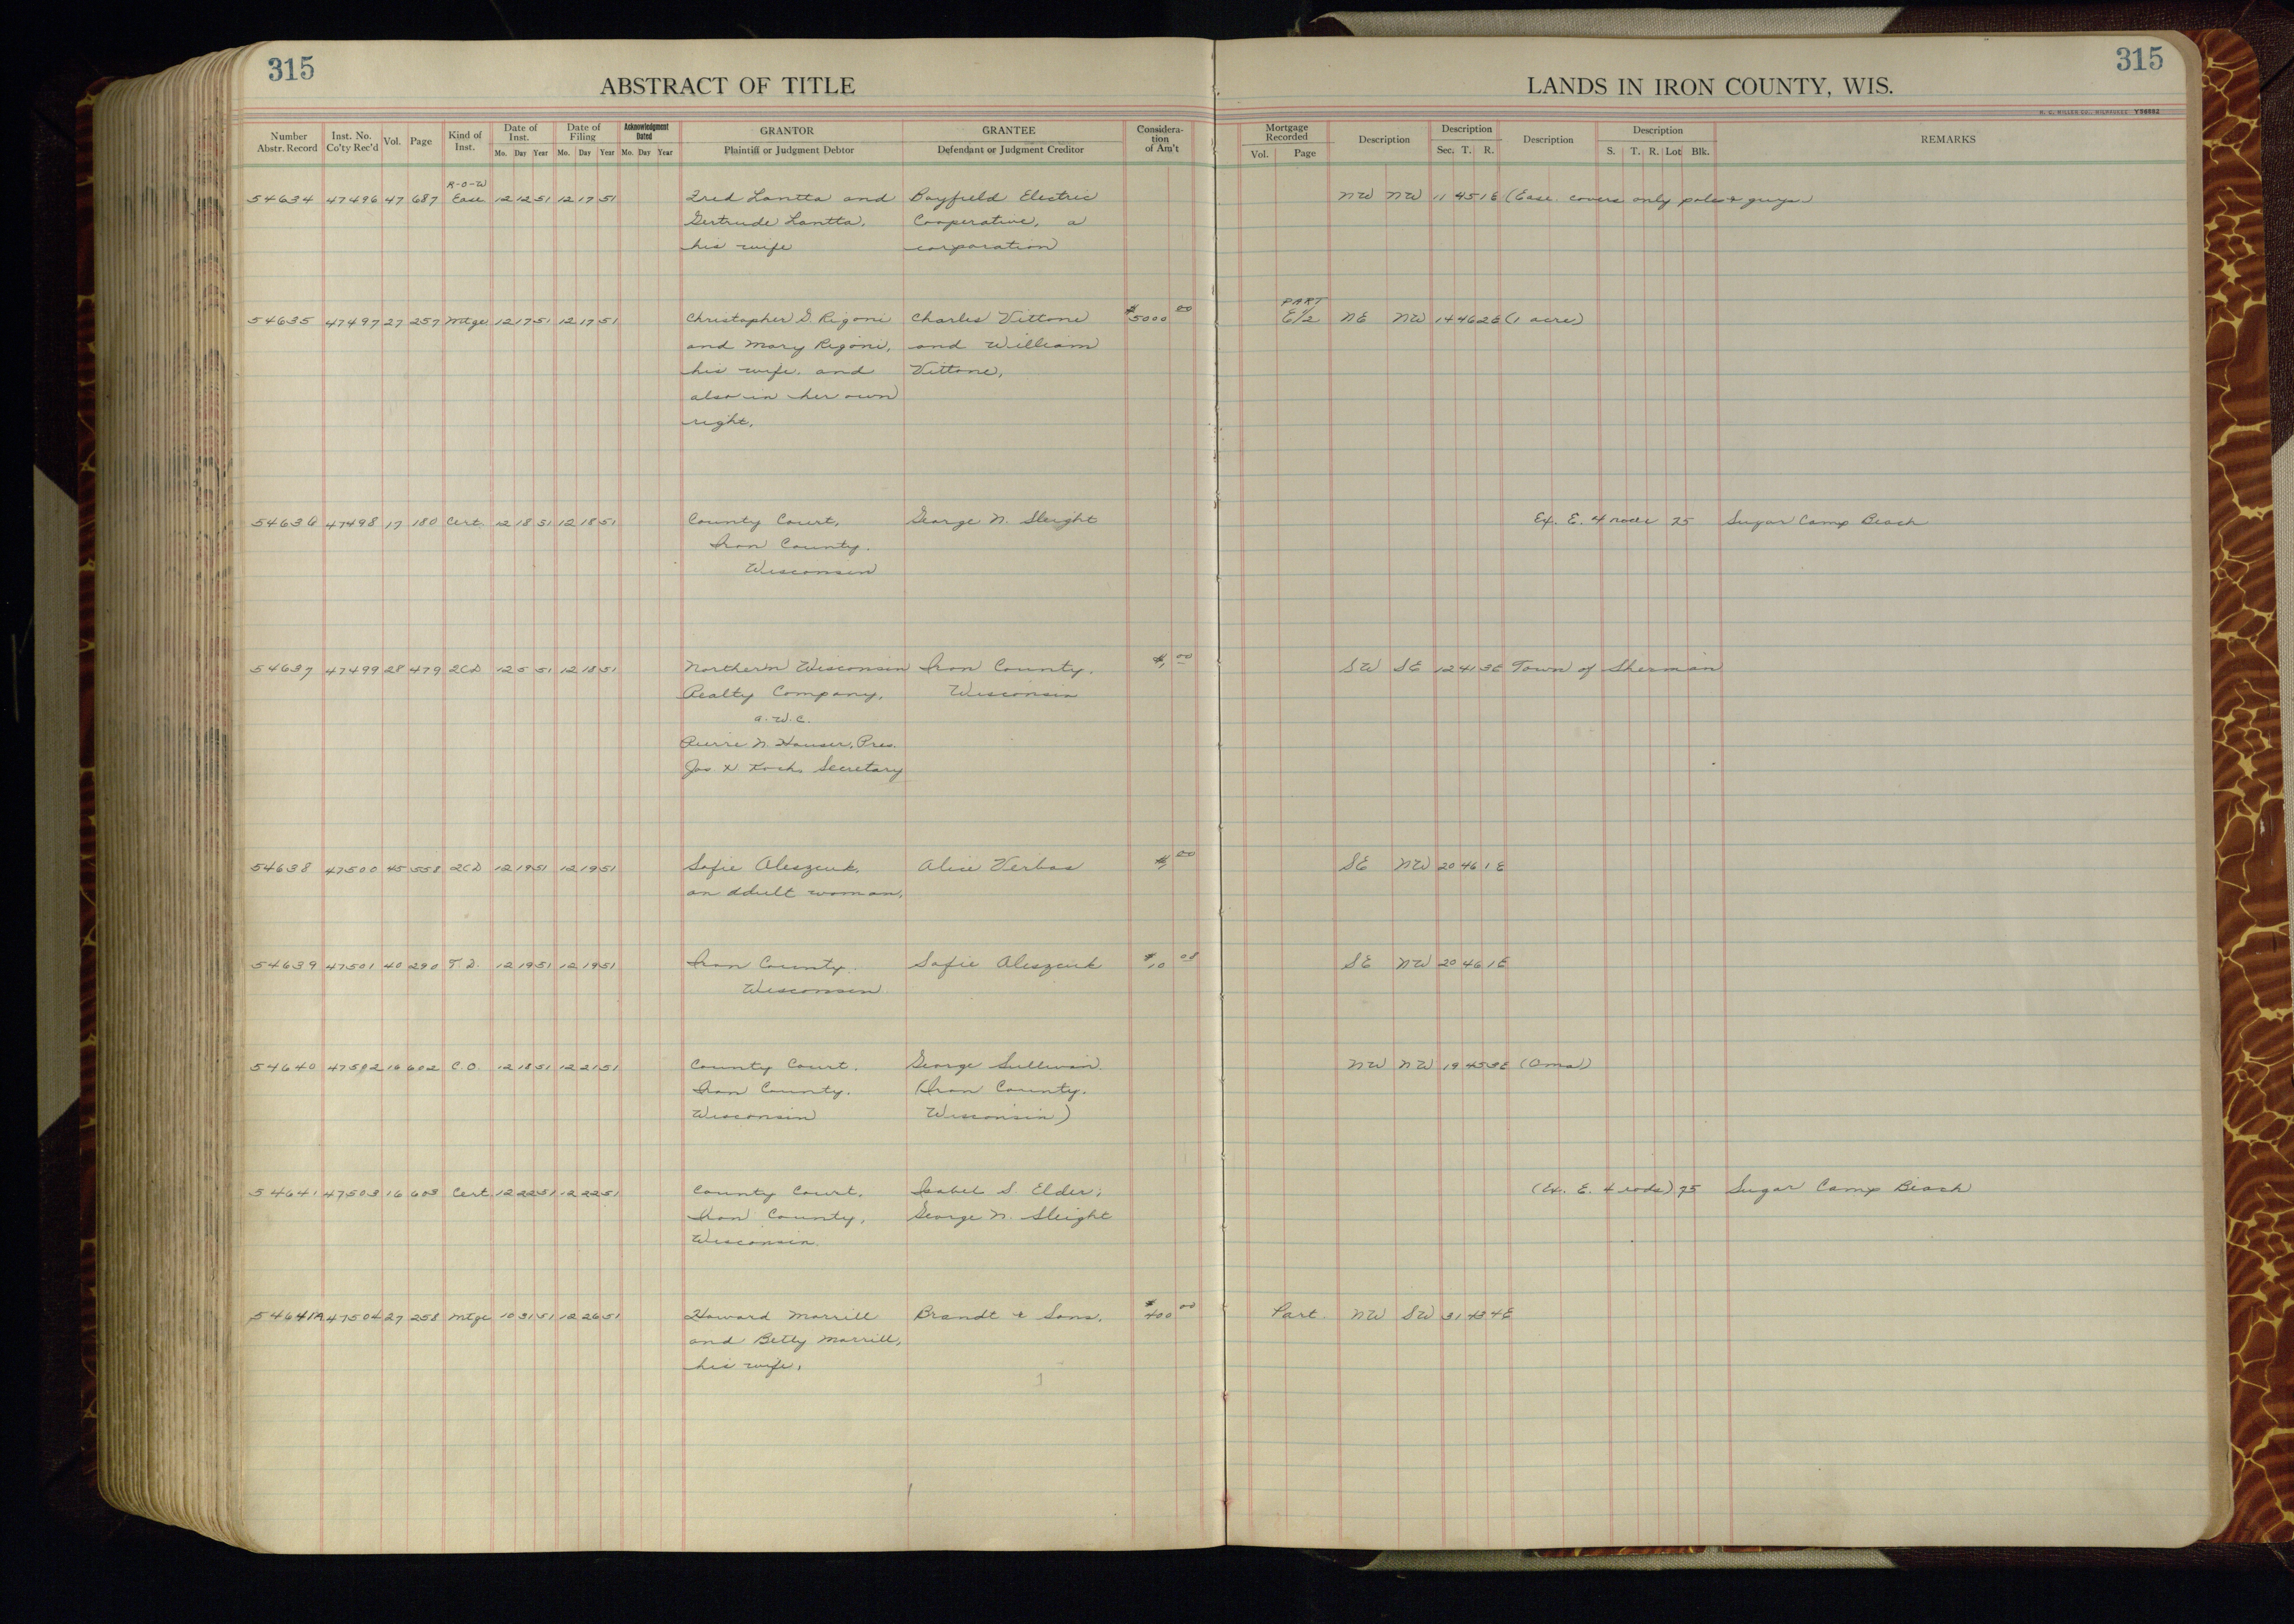 315
ABSTRACT OF TITLE
LANDS IN IRON COUNTY, WIS.
315
Number Abstr. Record Inst. No. Co'ty Rec'd Vol. Page Kind of Inst. Date of Inst. Mo. Day Year Date of Filing Mo. Day Year Acknowledgment Dated Mo. Day Year GRANTOR Plaintiff or Judgment Debtor GRANTEE Defendant or Judgment Creditor Considera-tion of Am't Mortgage Recorded Vol. Page Description Description Sec. T. R. Description Description S. T. R. Lot Blk. REMARKS
R-O-W
54634 47496 47 687 Ease 12 12 51 12 17 51 Fred Lantta and Bayfield Electric NW NW 11 45 1E (Ease. covers only poles & guys)
Gertrude Lantta, Cooperative, a
his wife corporation
PART
54635 47497 27 257 Mtge 12 17 51 12 17 51 Christopher G. Rigoni Charles Vittone $5000 00 E1/2 NE NW 14 46 2E (1 acre)
and Mary Rigoni, and William
his wife, and Vittone,
also in her own
right,
54636 47498 17 180 Cert. 12 18 51 12 18 51 County Court, George N. Sleight Ex. E. 4 25 Sugar Camp Beach
Iron County,
Wisconsin
54637 47499 28 479 2CD 12 5 51 12 18 51 Northern Wisconsin Iron County, $1 00 SW SE 12 41 3E Town of Sherman
Realty Company, Wisconsin
a. W. C.
Pierre N. Hauser, Pres.
Jos Koch, Secretary
54638 47500 45 558 2CD 12 19 51 12 19 51 Sofie Aleszcuk, Alice Verbos $1 00 SE NW 20 46 1E
an adult woman,
54639 47501 40 290 T.D. 12 19 51 12 19 51 Iron County, Sofie Aleszcuk $10 08 SE NW 20 46 1E
Wisconsin
54640 47502 16 602 C.O. 12 18 51 12 21 51 County Court, George Sullivan NW NW 19 45 3E (Oma)
Iron County, (Iron County,
Wisconsin Wisconsin)
54641 47503 16 603 Cert. 12 22 51 12 22 51 County Court, Isabel S. Elder; (Ex. E. 4 rods) 25 Sugar Camp Beach
Iron County, George N. Sleight
Wisconsin
54641A 47504 27 258 Mtge 10 31 51 12 26 51 Howard Morrill Brandt & Sons, $400 00 Part NW SW 31 43 4E
and Betty Morrill,
his wife,